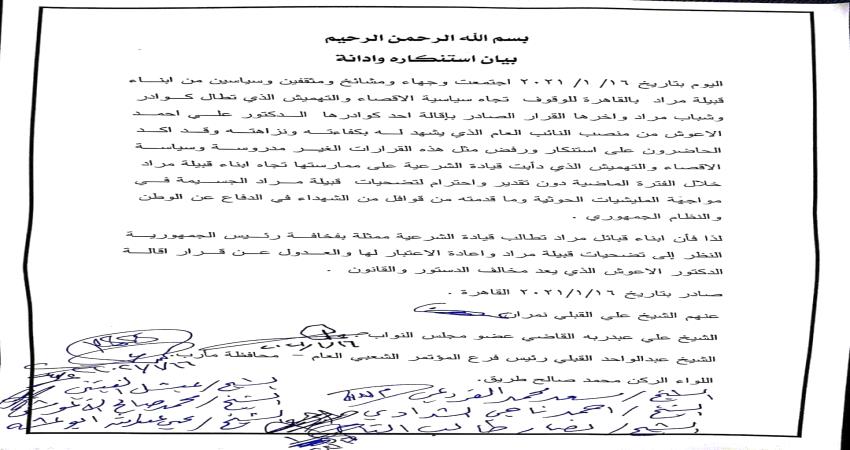 بسم الله الرحمن الرحيم
بيان استنكاره وادانة
اليوم بتاريخ ١٦/ ١/ ٢٠٢١ اجتمعت وجهاء ومشائخ ومثقفين وسياسين من ابناء
قبيلة مراد بالقاهرة للوقوف تجاه سياسية الاقصاء والتهميش الذي تطال كوادر
وشباب مراد واخرها القرار الصادر بإقالة احد كوادرها الدكتور علي احمد
الاعوش من منصب النائب العام الذي يشهد له بكفاءته ونزاهته وقد اكد
الحاضرون على استنكار ورفض مثل هذه القرارات الغير مدروسة وسياسة
الاقصاء والتهميش الذي دأبت قيادة الشرعية على ممارستها تجاه ابناء قبيلة مراد
خلال الفترة الماضية دون تقدير واحترام لتضحيات قبيلة مراد الجسيمة في
مواجهة المليشيات الحوثية وما قدمته من قوافل من الشهداء في الدفاع عن الوطن
والنظام الجمهوري .
لذا فأن ابناء قبائل مراد تطالب قيادة الشرعية ممثلة بفخافة رئيس الجمهورية
النظر إلى تضحيات قبيلة مراد واعادة الاعتبار لها والعدول عن قرار اقالة
الدكتور الاعوش الذي يعد مخالف الدستور والقانون .
صادر بتاريخ ٢٠٢١/١/١٦ القاهرة .
عنهم الشيخ علي القبلي نمران
الشيخ علي عبدربه القاضي عضو مجلس النواب
الشيخ عبدالواحد القبلي رئيس فرع المؤتمر الشعبي العام – محافظة مأرب
اللواء الركن محمد صالح طريق.
الشيخ / سعد محمد القردعي
الشيخ / احمد ناجي الشدادي
الشيخ / محمد صالح
الشيخ / نصار طالب
الشيخ / يحيى